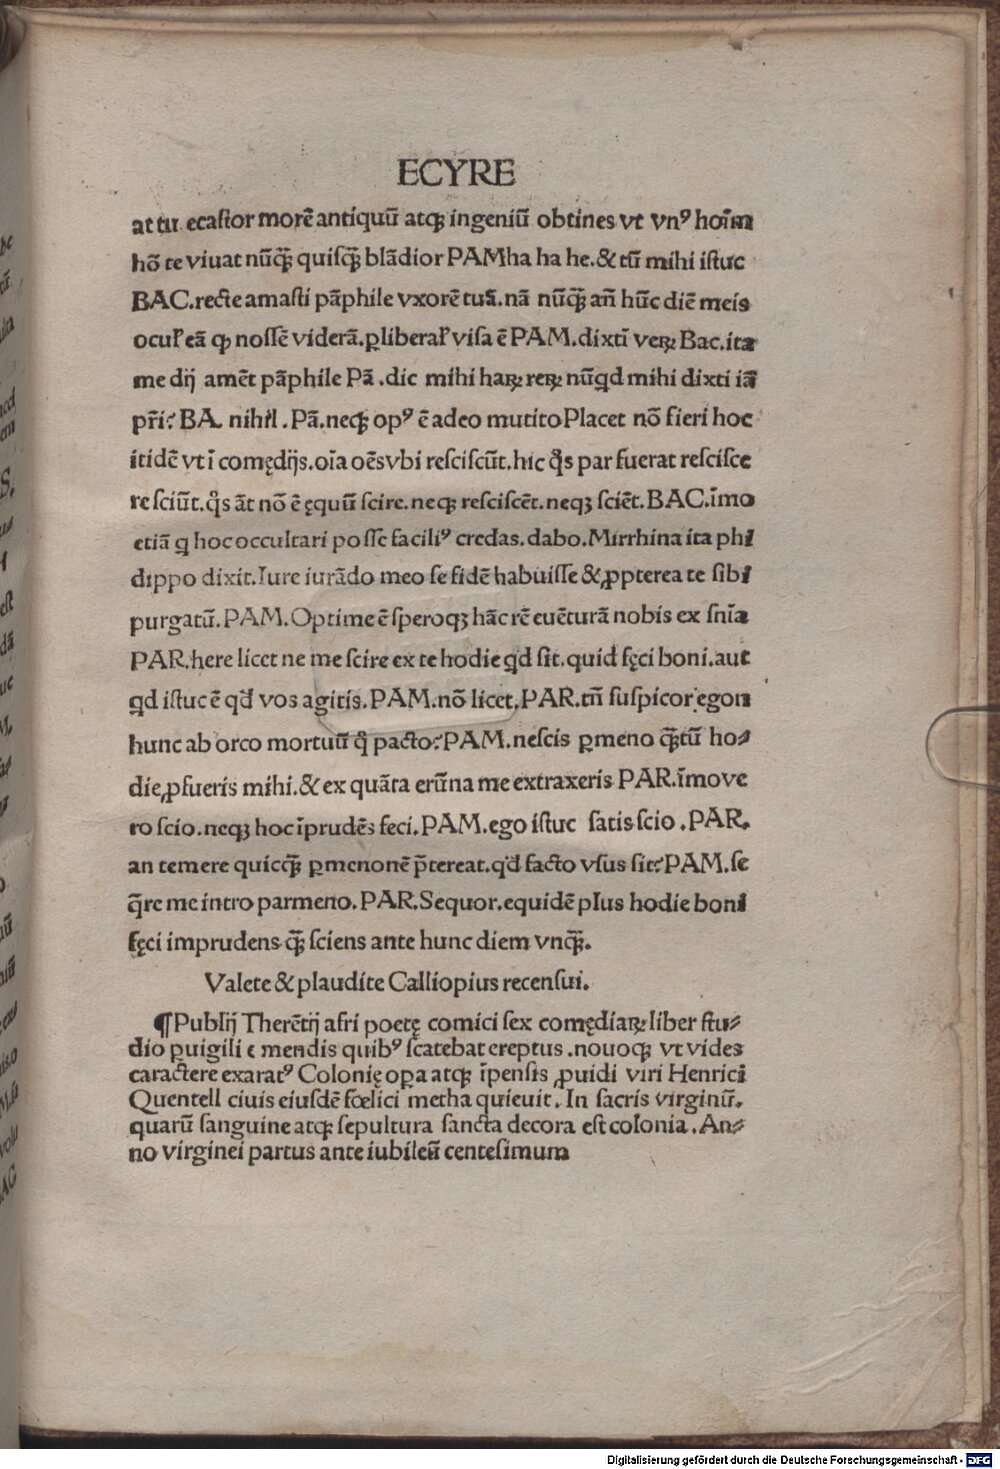 ECYRE
at tu ecastor morē antiquū atqꝫ ingeniū obtines vt vnꝰ hoīm
hō te viuat nūqꝫ̄ quisqꝫ̄ blādior PAM ha ha he.& tū mihi istuc
BAC.recte amasti pāphile vxorē tuā.nā nūqꝫ̄ an̄ hūc diē meis
oculꝭ eā ꝙ nossē viderā.ꝑliberalꝭ visa ē PAM.dixtī veꝝ Bac.ita
me dij amēt pāphile Pā .dic mihi haꝝ reꝝ nūqd mihi dixti iā
pr̄i? BA. nihil .Pā.neqꝫ opꝰ ē adeo mutito Placet nō fieri hoc
itidē vt ī comędijs.oīa oēs vbi resciscūt.hic q̊s par fuerat rescisce
resciūt.q̊s āt nō ē ęquū scire.neqꝫ resciscēt.neqꝫ sciēt.BAC.īmo
etiā q hoc occultari posse faciliꝰ credas.dabo.Mirrhina ita phi
dippo dixit.Iure iurādo meo se fidē habuisse & ꝓpterea te sibi
purgatū.PAM.Optime ē speroqꝫ hāc rē euēturā nobis ex snīa
PAR.here licet ne me scire ex te hodie qd sit.quid fęci boni.aut
qd istuc ē qd̄ vos agitis.PAM.nō licet.PAR.tn̄ suspicor egon
hunc ab orco mortuū q̊ pacto? PAM.nescis ꝑmeno qꝫ̄tū ho⸗
die ꝓfueris mihi.& ex quāta erūna me extraxeris PAR.īmo ve
ro scio.neqꝫ hoc īprudēs feci.PAM.ego istuc satis scio .PAR.
an temere quicqꝫ̄ ꝑmenonē p̄tereat.qd̄ facto vsus sit? PAM.se
q̄re me intro parmeno.PAR.Sequor.equidē plus hodie boni
fęci imprudens qꝫ̄ sciens ante hunc diem vnqꝫ̄.
Valete & plaudite Calliopius recensui.
¶Publij Therētij afri poetę comici sex comędiaꝝ liber stu⸗
dio ꝑuigili e mendis quibꝰ scatebat ereptus .nouoqꝫ vt vides
caractere exaratꝰ Colonię oꝑa atqꝫ īpensis ꝓuidi viri Henrici
Quentell ciuis eiusdē fœlici metha quieuit. In sacris virginū.
quarū sanguine atqꝫ sepultura sancta decora est colonia .An⸗
no virginei partus ante iubileū centesimum
Digitalisierung gefördert durch die Deutsche Forschungsgemeinschaft - DFG